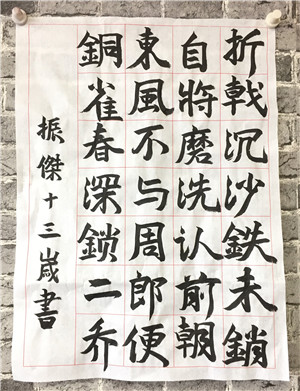 折戟沉沙鉄未銷
自將磨洗认前朝
東風不与周郎便
銅雀春深鎖二乔
振傑十三嵗書